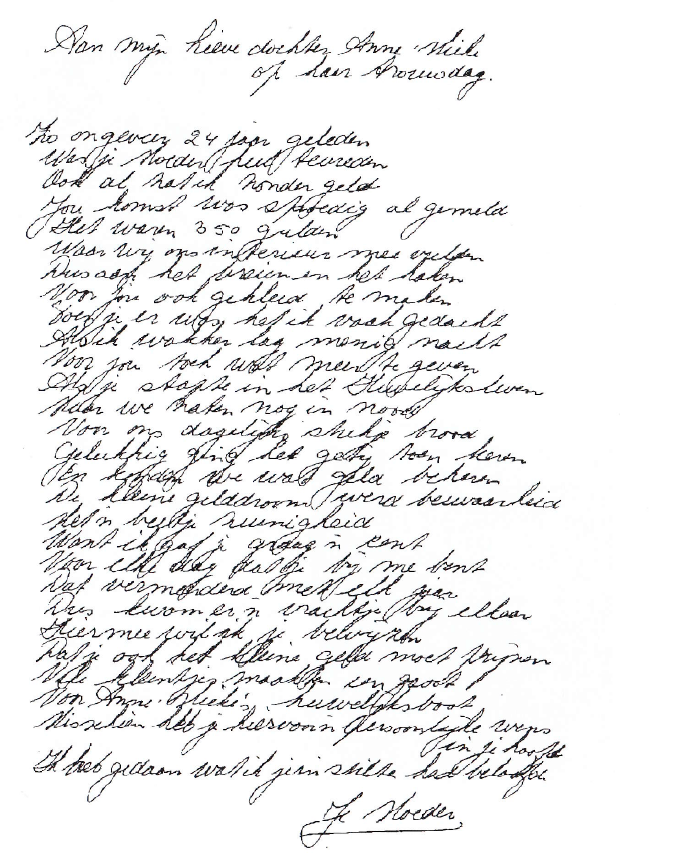 Aan mijn lieve dochter Anne-Mieke
op haar trouwdag.
Zo ongeveer 24 jaar geleden
Was je Moeder heel tevreden
Ook al zat ik zonder geld
Jou komst was spoedig al gemeld
Het waren 350 gulden
Waar wij ons interieur mee vulden
Dus aan het breien en het haken
Voor jou ook gekleid te maken
Toen je er was heb ik vaak gedacht
Als ik wakker lag menig nacht
Voor jou toch wat meer te geven
Als je stapte in het Huwelijksleven
Maar we zaten nog in nood
Voor ons dagelijks stukje brood
Gelukkig ging het getij toen keren
En konden we wat geld beheren
De kleine gelddroom werd bewaarheid
Met 'n beetje zuinigheid
Want ik gaf je graag 'n cent
Voor elke dag dat je bij me bent
Dat vermeerderd met elk jaar
Dus kwam er 'n vrachtje bij elkaar
Hiermee wil ik je bewijzen
Dat je ook het kleine geld moet prijzen
Vele kleintjes maakten een groot
Voor Anne-Mieke's huwelijksboot
Misschien heb je hiervoor 'n persoonlijke wens
in je hoofd
Ik heb gedaan wat ik je in stilte had beloofd.
Je Moeder